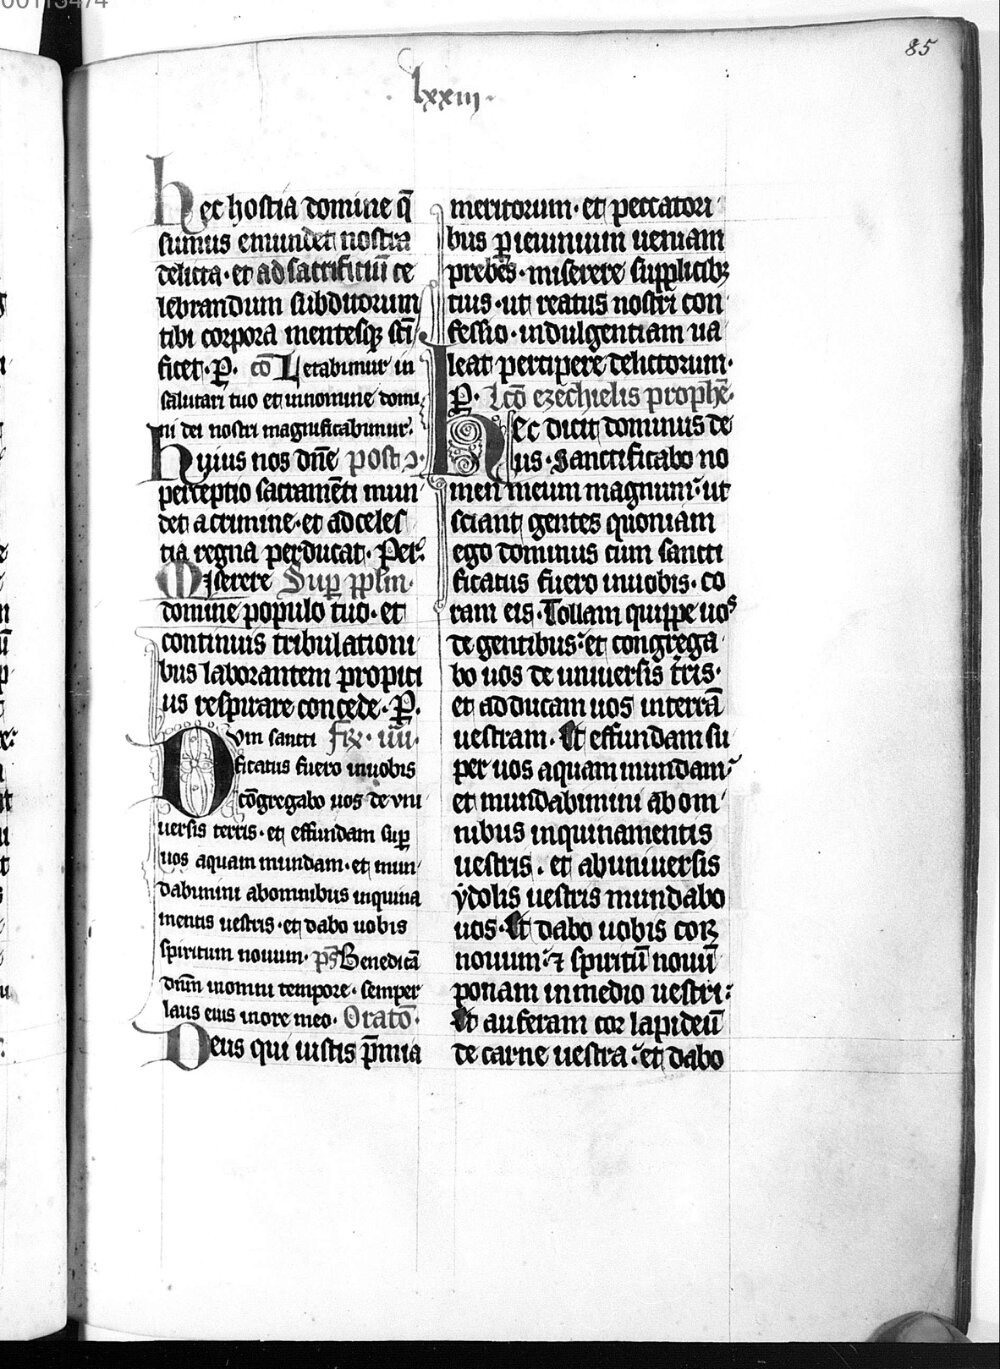 85
·lxxiii·
hec hostia domine q̄
sumus emundet nostra
delicta· et ad sacrificiū ce
lebrandum subditorum
tibi corpora mentesq; scī
ficet· P. cō Letabimur in
salutari tuo et in nomine domi
ni dei nostri magnificabimur.
huius nos dn̄e post
perceptio sacramēti mun
det a crimine· et ad celes
tia regna perducat· Per.
Miserere Suꝑ pplm̄·
domine populo tuo· et
continuis tribulationi
bus laborantem propici
us respirare concede· P.
Dum sancti
ficatus fuero in uobis
cōgregabo uos de vni
uersis terris· et effundam suꝑ
uos aquam mundam· et mun
dabimini ab omnibus inquina
mentis uestris· et dabo uobis
spiritum nouum· ps̄ Benedicā
dn̄m in omni tempore· semper
laus eius in ore meo· Oratō·
Deus qui iustis p̄mia
meritorum· et peccatori
bus ꝑ ieiunium ueniam
prebes· miserere supplicibꝫ
tuis· ut reatus nostri con
fessio· indulgentiam ua
leat percipere delictorum·
P. Lcō ezechielis prophē·
Hec dicit dominus de
us· Sanctificabo no
men meum magnum· ut
sciant gentes quoniam
ego dominus cum sancti
ficatus fuero in uobis· co
ram eis· Tollam quippe uos
de gentibus· et congrega
bo uos de uniuersis t̄ris·
et adducam uos in terrā
uestram· Et effundam su
per uos aquam mundam·
et mundabimini ab om
nibus inquinamentis
uestris· et ab uniuersis
ydolis uestris mundabo
uos· Et dabo uobis cor
nouum· ⁊ spiritū nouū
ponam in medio uestri·
Et auferam cor lapideū
de carne uestra· et dabo